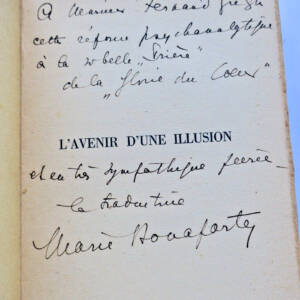 à Monsieur Fernand Gregh
cette réponse psychanalytique
à la si belle „Prière"
de la „Gloire du Cœur"
L'AVENIR D'UNE ILLUSION
et en très sympathique pensée
la traductrice
Marie Bonaparte